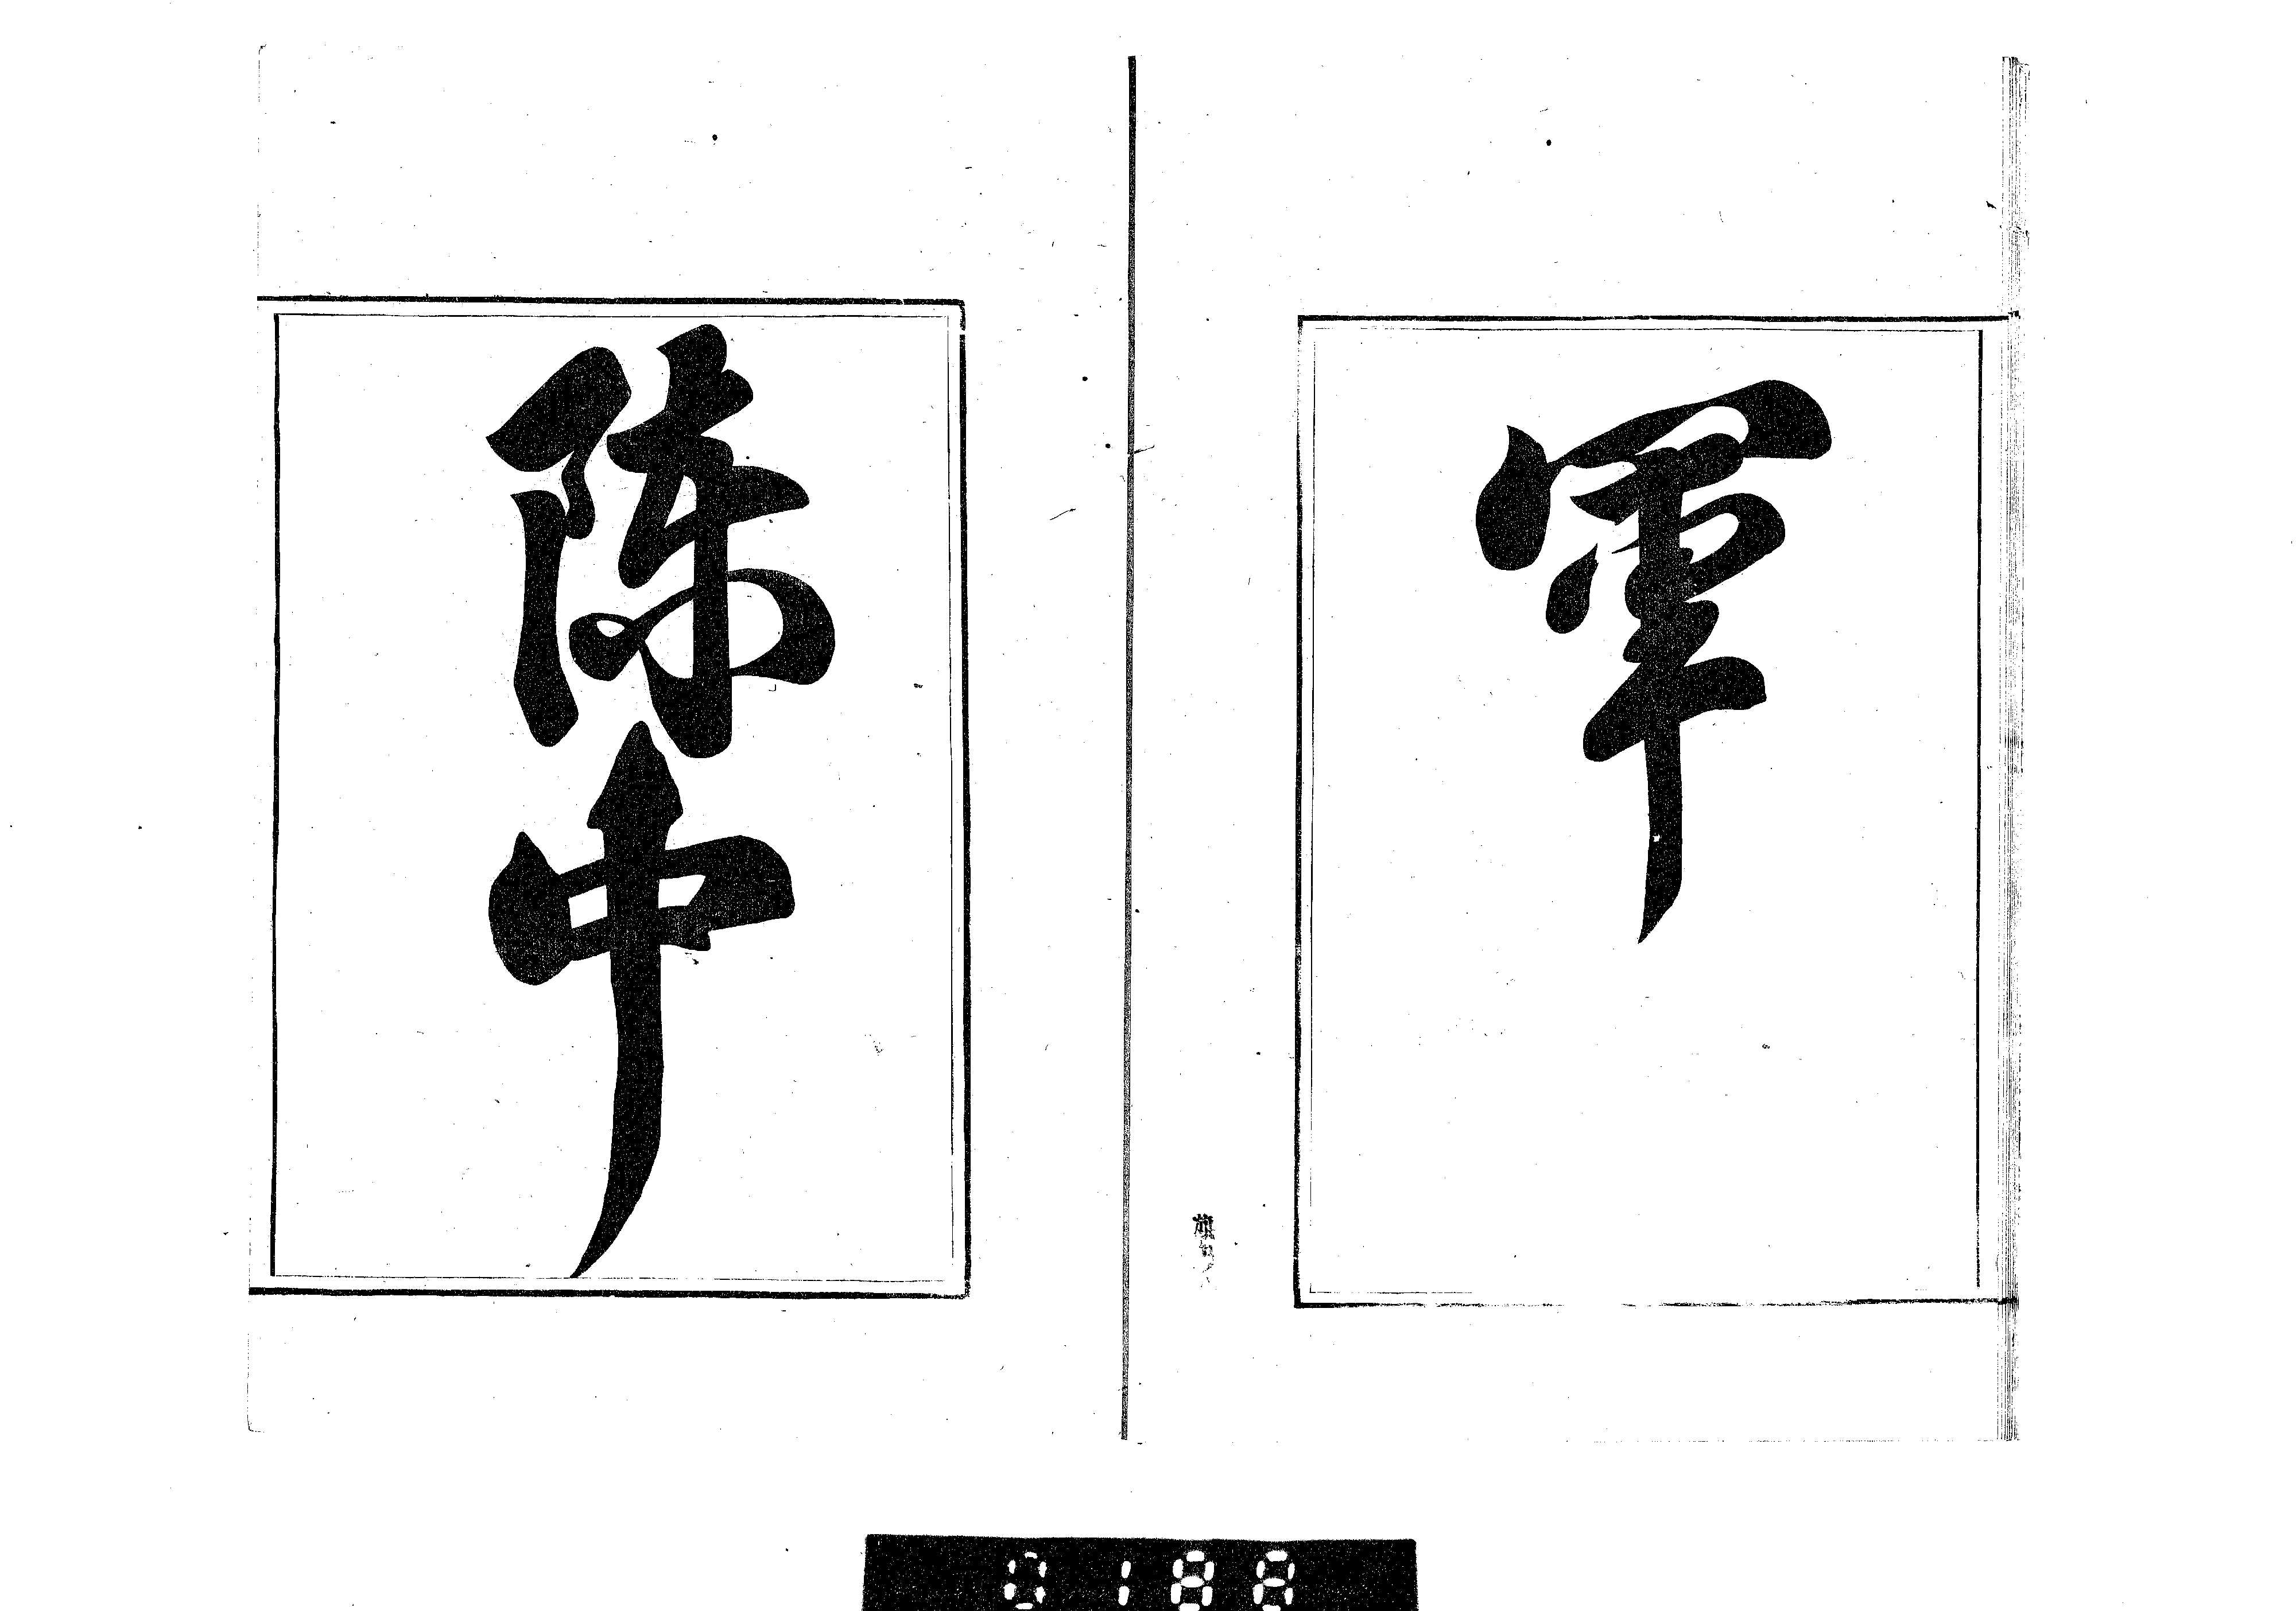 軍
陳中
0188